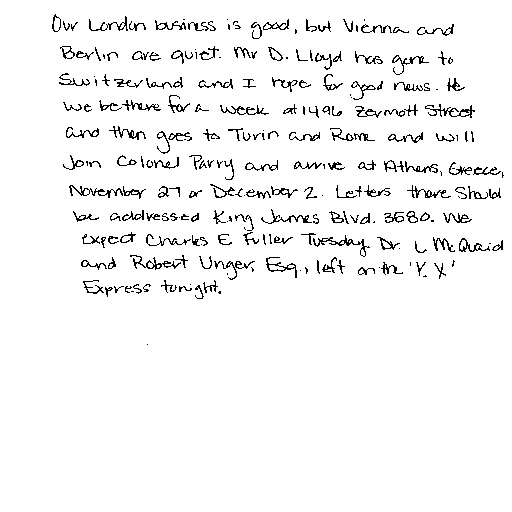 Our London business is good, but Vienna and
Berlin are quiet. Mr D. Lloyd has gone to
Switzerland and I hope for good news. He
we be there for a week at 1496 Zermott Street
and then goes to Turin and Rome and will
join Colonel Parry and arrive at Athens, Greece,
November 27 or December 2. Letters there should
be addressed King James Blvd. 3580. We
expect Charles E Fuller Tuesday. Dr. L McQuaid
and Robert Unger, Esq., left on the 'Y. X'
Express tonight.